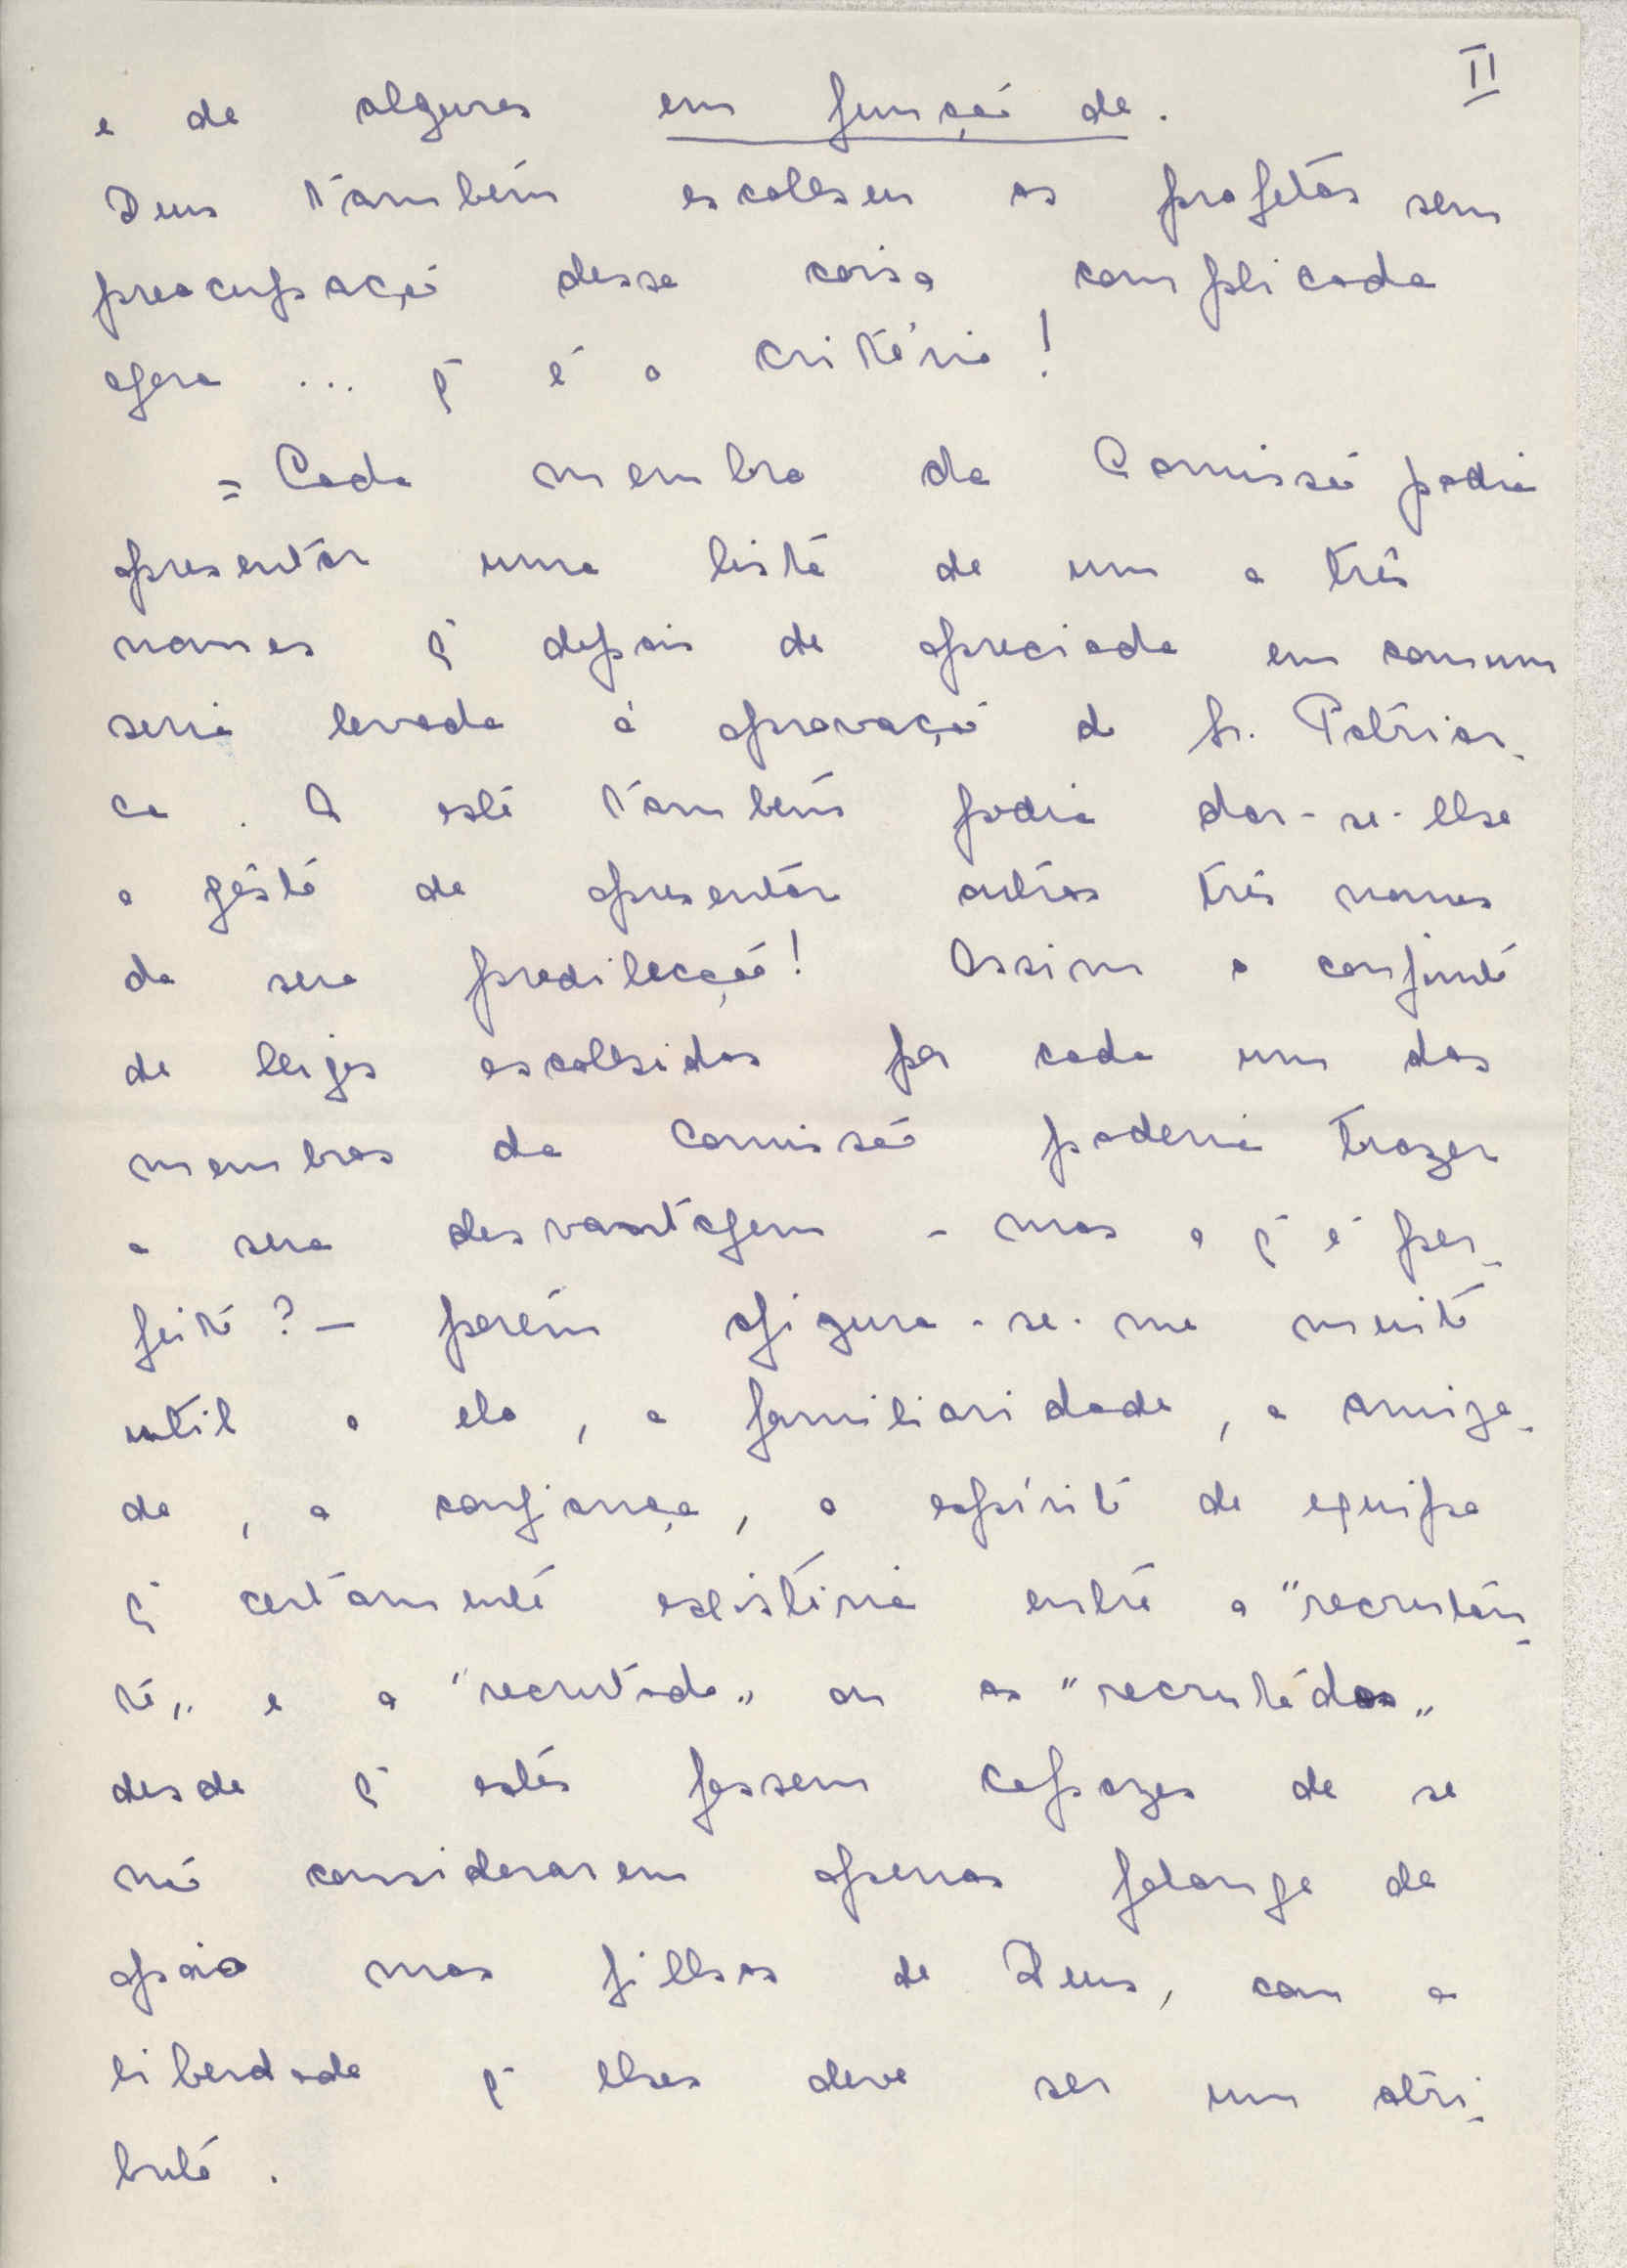 II
e de algures em função de.
Deus também escolheu os profetas sem
preocupação dessa coisa complicada
agora ... q̃ é o critério!
= Cada membro da Comissão podia
apresentar uma lista de um a três
nomes q̃ depois de apreciada em comum
seria levada à aprovação do Sr. Patriar-
ca. A este também podia dar-se-lhe
o gôsto de apresentar outros três nomes
da sua predilecção! Assim o conjunto
de leigos escolhidos por cada um dos
membros da Comissão poderia trazer
a sua desvantagem - mas o q̃ é per-
feito? - porém afigura-se-me muito
util o elo, a familiaridade, a amiza-
de, a confiança, o espírito de equipa
q̃ certamente existiria entre o "recrutan-
te" e o "recrutado" ou os "recrutados"
desde q̃ estes fossem capazes de se
não considerarem apenas falange de
apoio mas filhos de Deus, com a
liberdade q̃ lhes deve ser um atri-
buto.